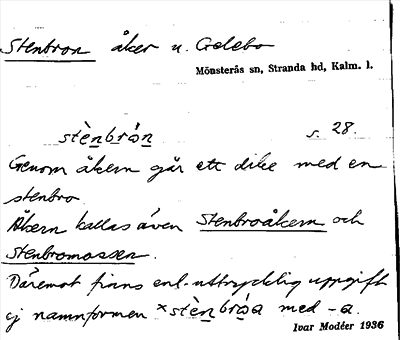 Stenbron åker u. Gelebo
Mönsterås sn, Stranda hd, Kalm. l.
stènbrón s. 28.
Genom åkern går ett dike med en
stenbro.
Åkern kallas även Stenbroåkern och
Stenbromossen.
Däremot finns enl. uttrycklig uppgift
ej namnformen ×stènbróa med -a.
Ivar Modéer 1936